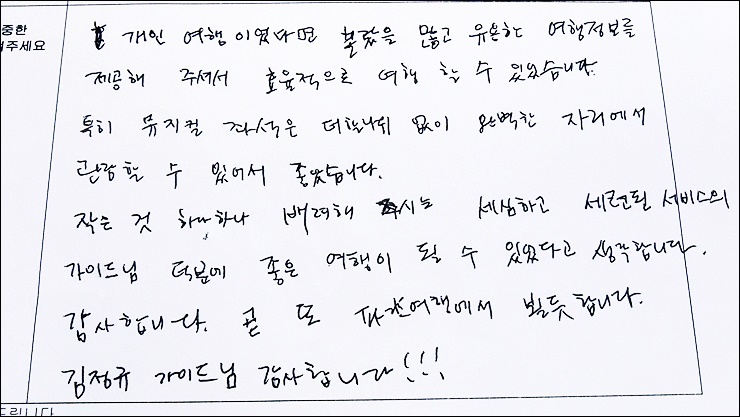 중한
주세요
개인 여행이었다면 몰랐을 많고 유용한 여행정보를
제공해 주셔서 효율적으로 여행 할 수 있었습니다.
특히 뮤지컬 좌석은 더할나위 없이 완벽한 자리에서
관람할 수 있어서 좋았습니다.
작은 것 하나하나 배려해 주시는 세심하고 세련된 서비스의
가이드님 덕분에 좋은 여행이 될 수 있었다고 생각합니다.
감사합니다. 곧 또 여행에서 뵐듯합니다.
김정규 가이드님 감사합니다!!!